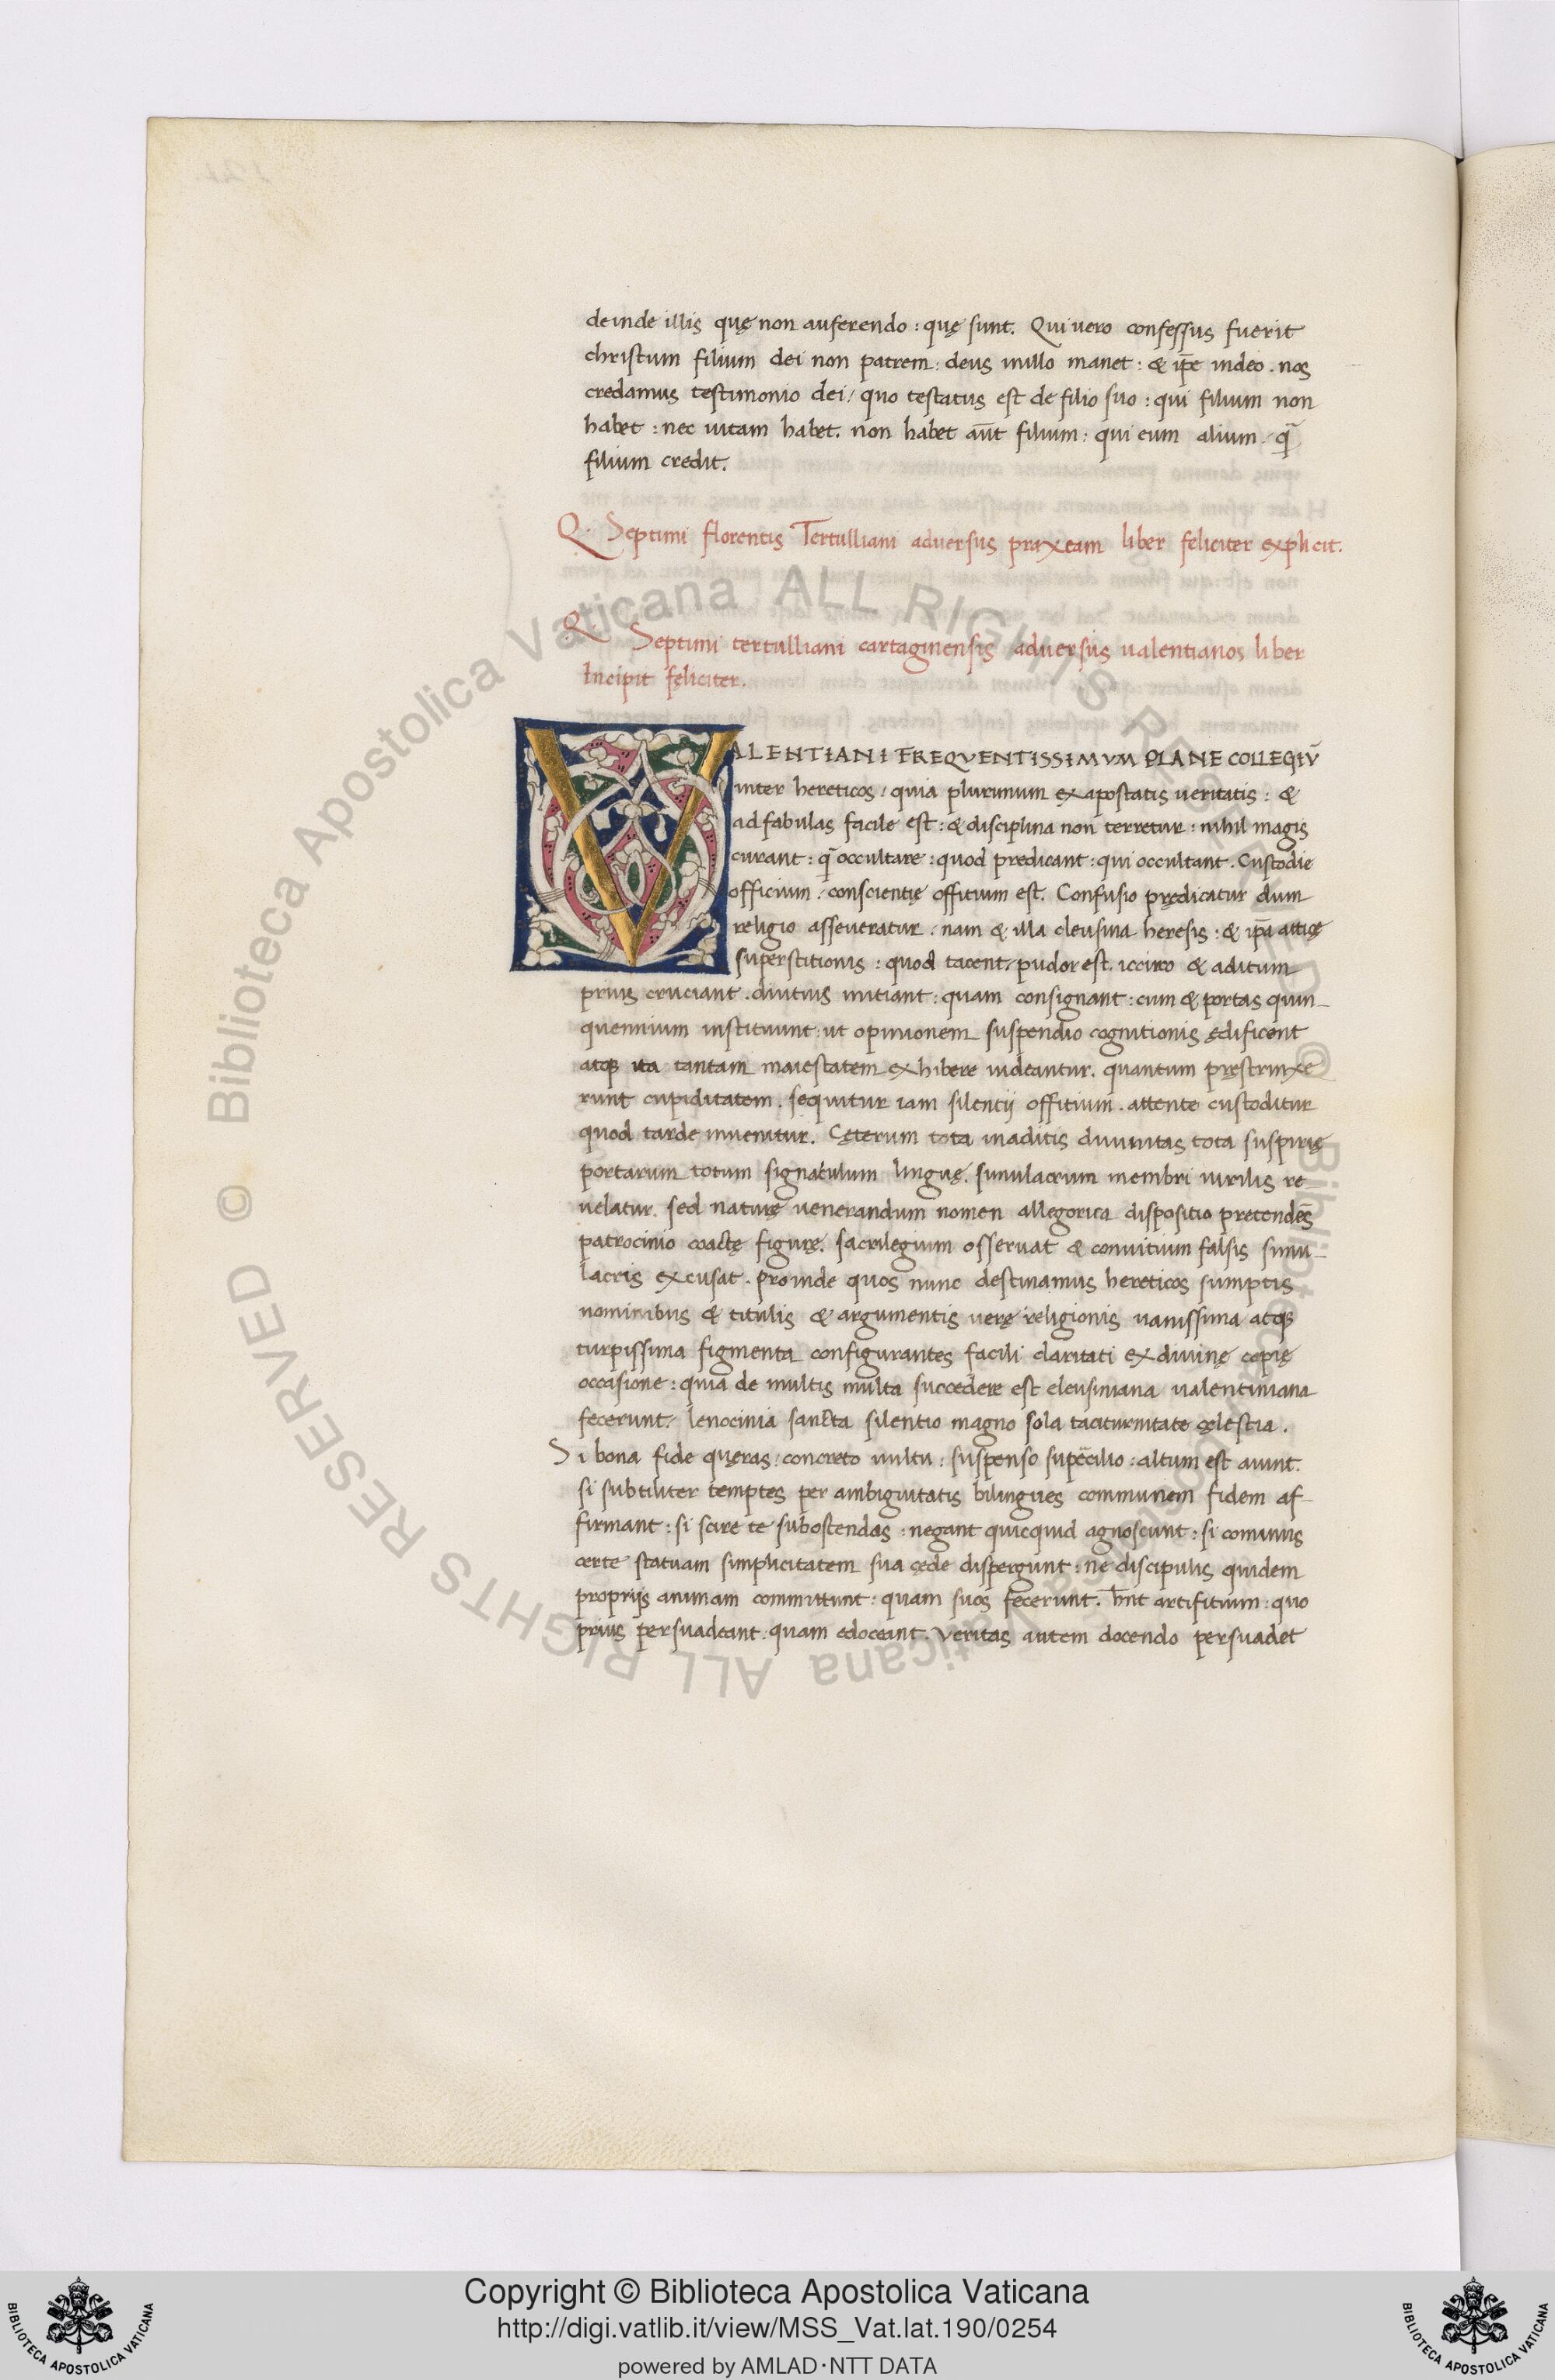 deinde illis quę non auferendo : quę sunt. Qui uero confessus fuerit
christum filium dei non patrem : deus inillo manet : & ip̄e indeo . nos
credamus testimonio dei / quo testatus est de filio suo : qui filium non
habet : nec uitam habet. non habet aūt filium : qui eum alium / q̄
filium credit.
Q. Septimi florentis Tertulliani adversus praxeam liber feliciter explicit.
Q. Septimi tertulliani cartaginensis adversus valentianos liber
Incipit fęliciter.
VALENTIANI FREQVENTISSIMVM PLANE COLLEGIV̄
inter hereticos / quia plurimum ex apostatis veritatis : &
ad fabulas facile est : & disciplina non terretur : nihil magis
curant : q̄ occultare : quod predicant : qui occultant . Custodie
officium / conscientię offitium est. Confusio prędicatur dum
religio asseveratur . nam & illa eleusina heresis : & ip̄a attigę
superstitionis : quod tacent / pudor est. iccirco & aditum
prius cruciant . diutius initiant : quam consignant : cum & portas quin-
quennium instituunt : ut opinionem suspendio cognitionis ędificent
atq; ita tantam maiestatem exhibere uideantur. quantum pręstrinxe
runt cupiditatem . sequitur iam silentij offitium . attente custoditur
quod tarde inuenitur. Cęterum tota inaditis diuinitas tota suspirię
portarum totum signaculum linguę. simulacrum membri uirilis re
uelatur. sed naturę venerandum nomen allegorica dispositio pretendēs
patrocinio coactę figurę. sacrilegium osseruat & conuitium falsis simu-
lacris excusat . proinde quos nunc destinamus hereticos sumptis
nominibus & titulis & argumentis verę religionis vanissima atq;
turpissima figmenta configurantes facili claritati ex divinę copię
occasione : quia de multis multa succedere est eleusiniana valentiniana
fecerunt / lenocinia sancta silentio magno sola taciturnitate cęlestia .
Si bona fide quęras : concreto uultu : suspenso sup̄cilio : altum est aiunt.
si subtiliter temptes per ambiguitatis bilingues communem fidem af-
firmant : si scire te subostendas : negant quicquid agnoscunt : si cominus
certe statuam simplicitatem sua cęde dispergunt : ne discipulis quidem
proprijs animam committunt : quam suos fecerunt. hn̄t artifitium : quo
prius persuadeant . quam edoceant. Veritas autem docendo persuadet
© Biblioteca Apostolica Vaticana ALL RIGHTS RESERVED © Biblioteca Apostolica Vaticana ALL RIGHTS RESERVED
Copyright © Biblioteca Apostolica Vaticana
http://digi.vatlib.it/view/MSS_Vat.lat.190/0254
powered by AMLAD·NTT DATA
BIBLIOTECA APOSTOLICA VATICANA
BIBLIOTECA APOSTOLICA VATICANA